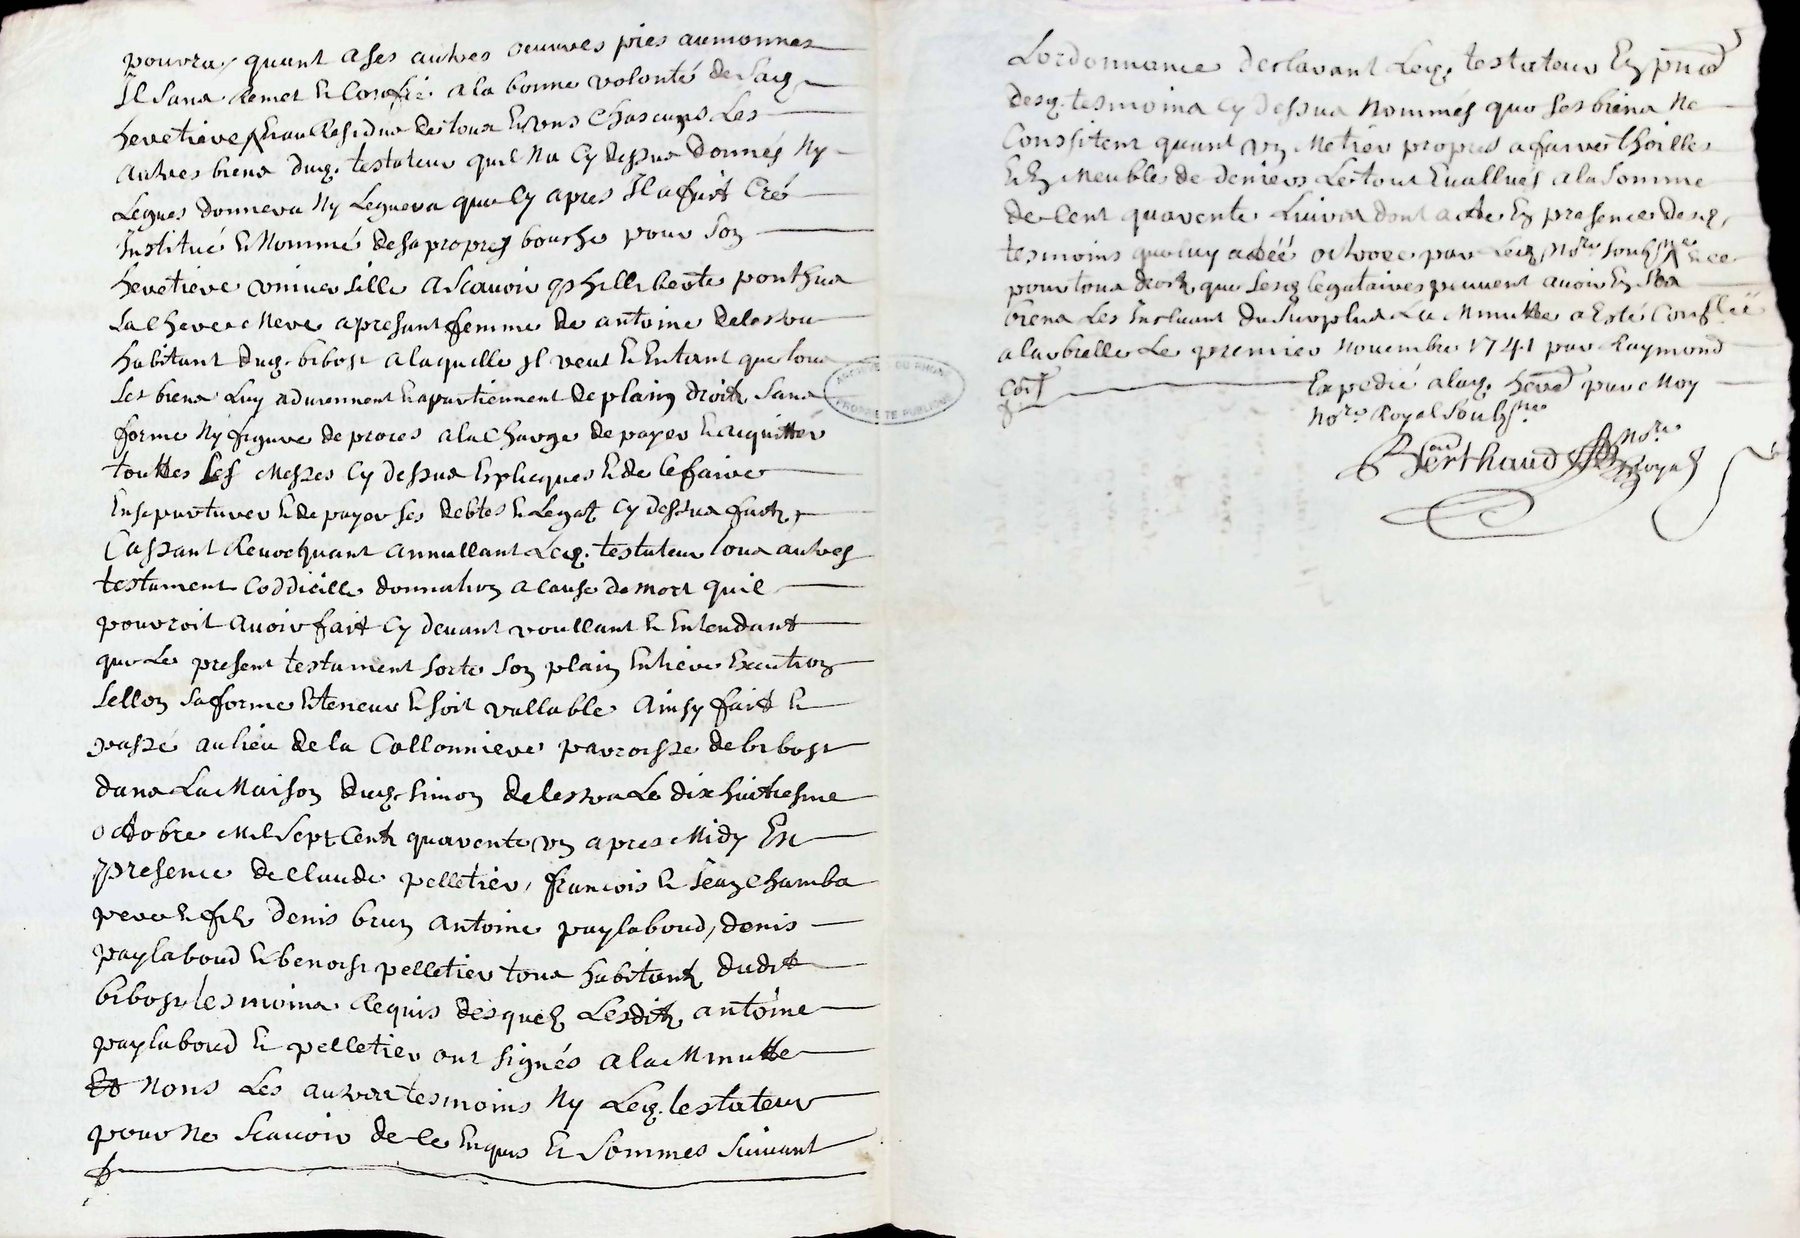 pouvra, quant a ses autres oeuvres pies aumonnes
Il sans Remet & Confié a la bonne volonté de sad.
heretiere, Et au Residue de tous & uns Chascuns Les
autres biens dud. testateur quil Na Cy dessus donnés Ny
Legues donnera Ny Leguera que Cy apres Il a fait Créé
Institué & Nommé de sa propres bouche pour son
heretiere universelle a scavoir philliberte ponthus
sa Chere Neve a present femme de antoine delessva
habitant dud. bibost a laquelle Il veut & Entant que tous
ses biens Luy adviennent & apartiennent de plaing droit sans
forme Ny figure de proces a la Charge de payer & acquitter
touttes les Messes Cy dessus Expliequés & de le faire
Ensepurturer & de payer ses debtes & Legat Cy dessus faits,
Cassant Revochuant annullant Led. testateur tous autres
testament Coddicille donnation a cause de mort quil
pouvroit avoir fait Cy devant voullant & Entendant
que Le present testament sorte son plain Entiere Execution
sellon sa forme & teneur & soit vallable ainsy fait &
passé au lieu de la Collonniere parroisse de bibost
dans La Maison dud. simon delessva Le dix huitiesme
octobre Mil Sept Cent quarente un apres Midy En
presence de Claude pelletier, francois & Jean Chamba
pere & fils denis brun antoine paylaboud, denis
paylaboud & benoist pelletier tous habitant dudit
bibost tesmoins Requis desquels Lesdits antoine
paylaboud & pelletier ont signés a la Minutte
Et Nons Les autres tesmoins Ny Led. testateur
pour Ne scavoir de ce Enquis & sommes suivant
Lordonnance declarant Led. testateur En pnce
desd. tesmoins Cy dessus Nommés que ses biens Ne
Conssitent quant un Metier propres a faire thoilles
& En Meubles de deniers Le tout Evallués a la somme
de Cent quarente Livres dont acte En presence desd.
tesmoins que luy a été octroee par Led. Nore. soubsne.
pour tous droit que sesd. legataires peuvent avoir En sea
biens Les Incluant du surplus La Minutte a Esté Conflée
a larbrelle Le premier Novembre 1741 par Raymond
Expedié a lad. hered. par Moy
Nore. Royal soubsne.
Berthaud Nore. Royal
ARCHIVES DU RHONE
PROPRIETE PUBLIQUE